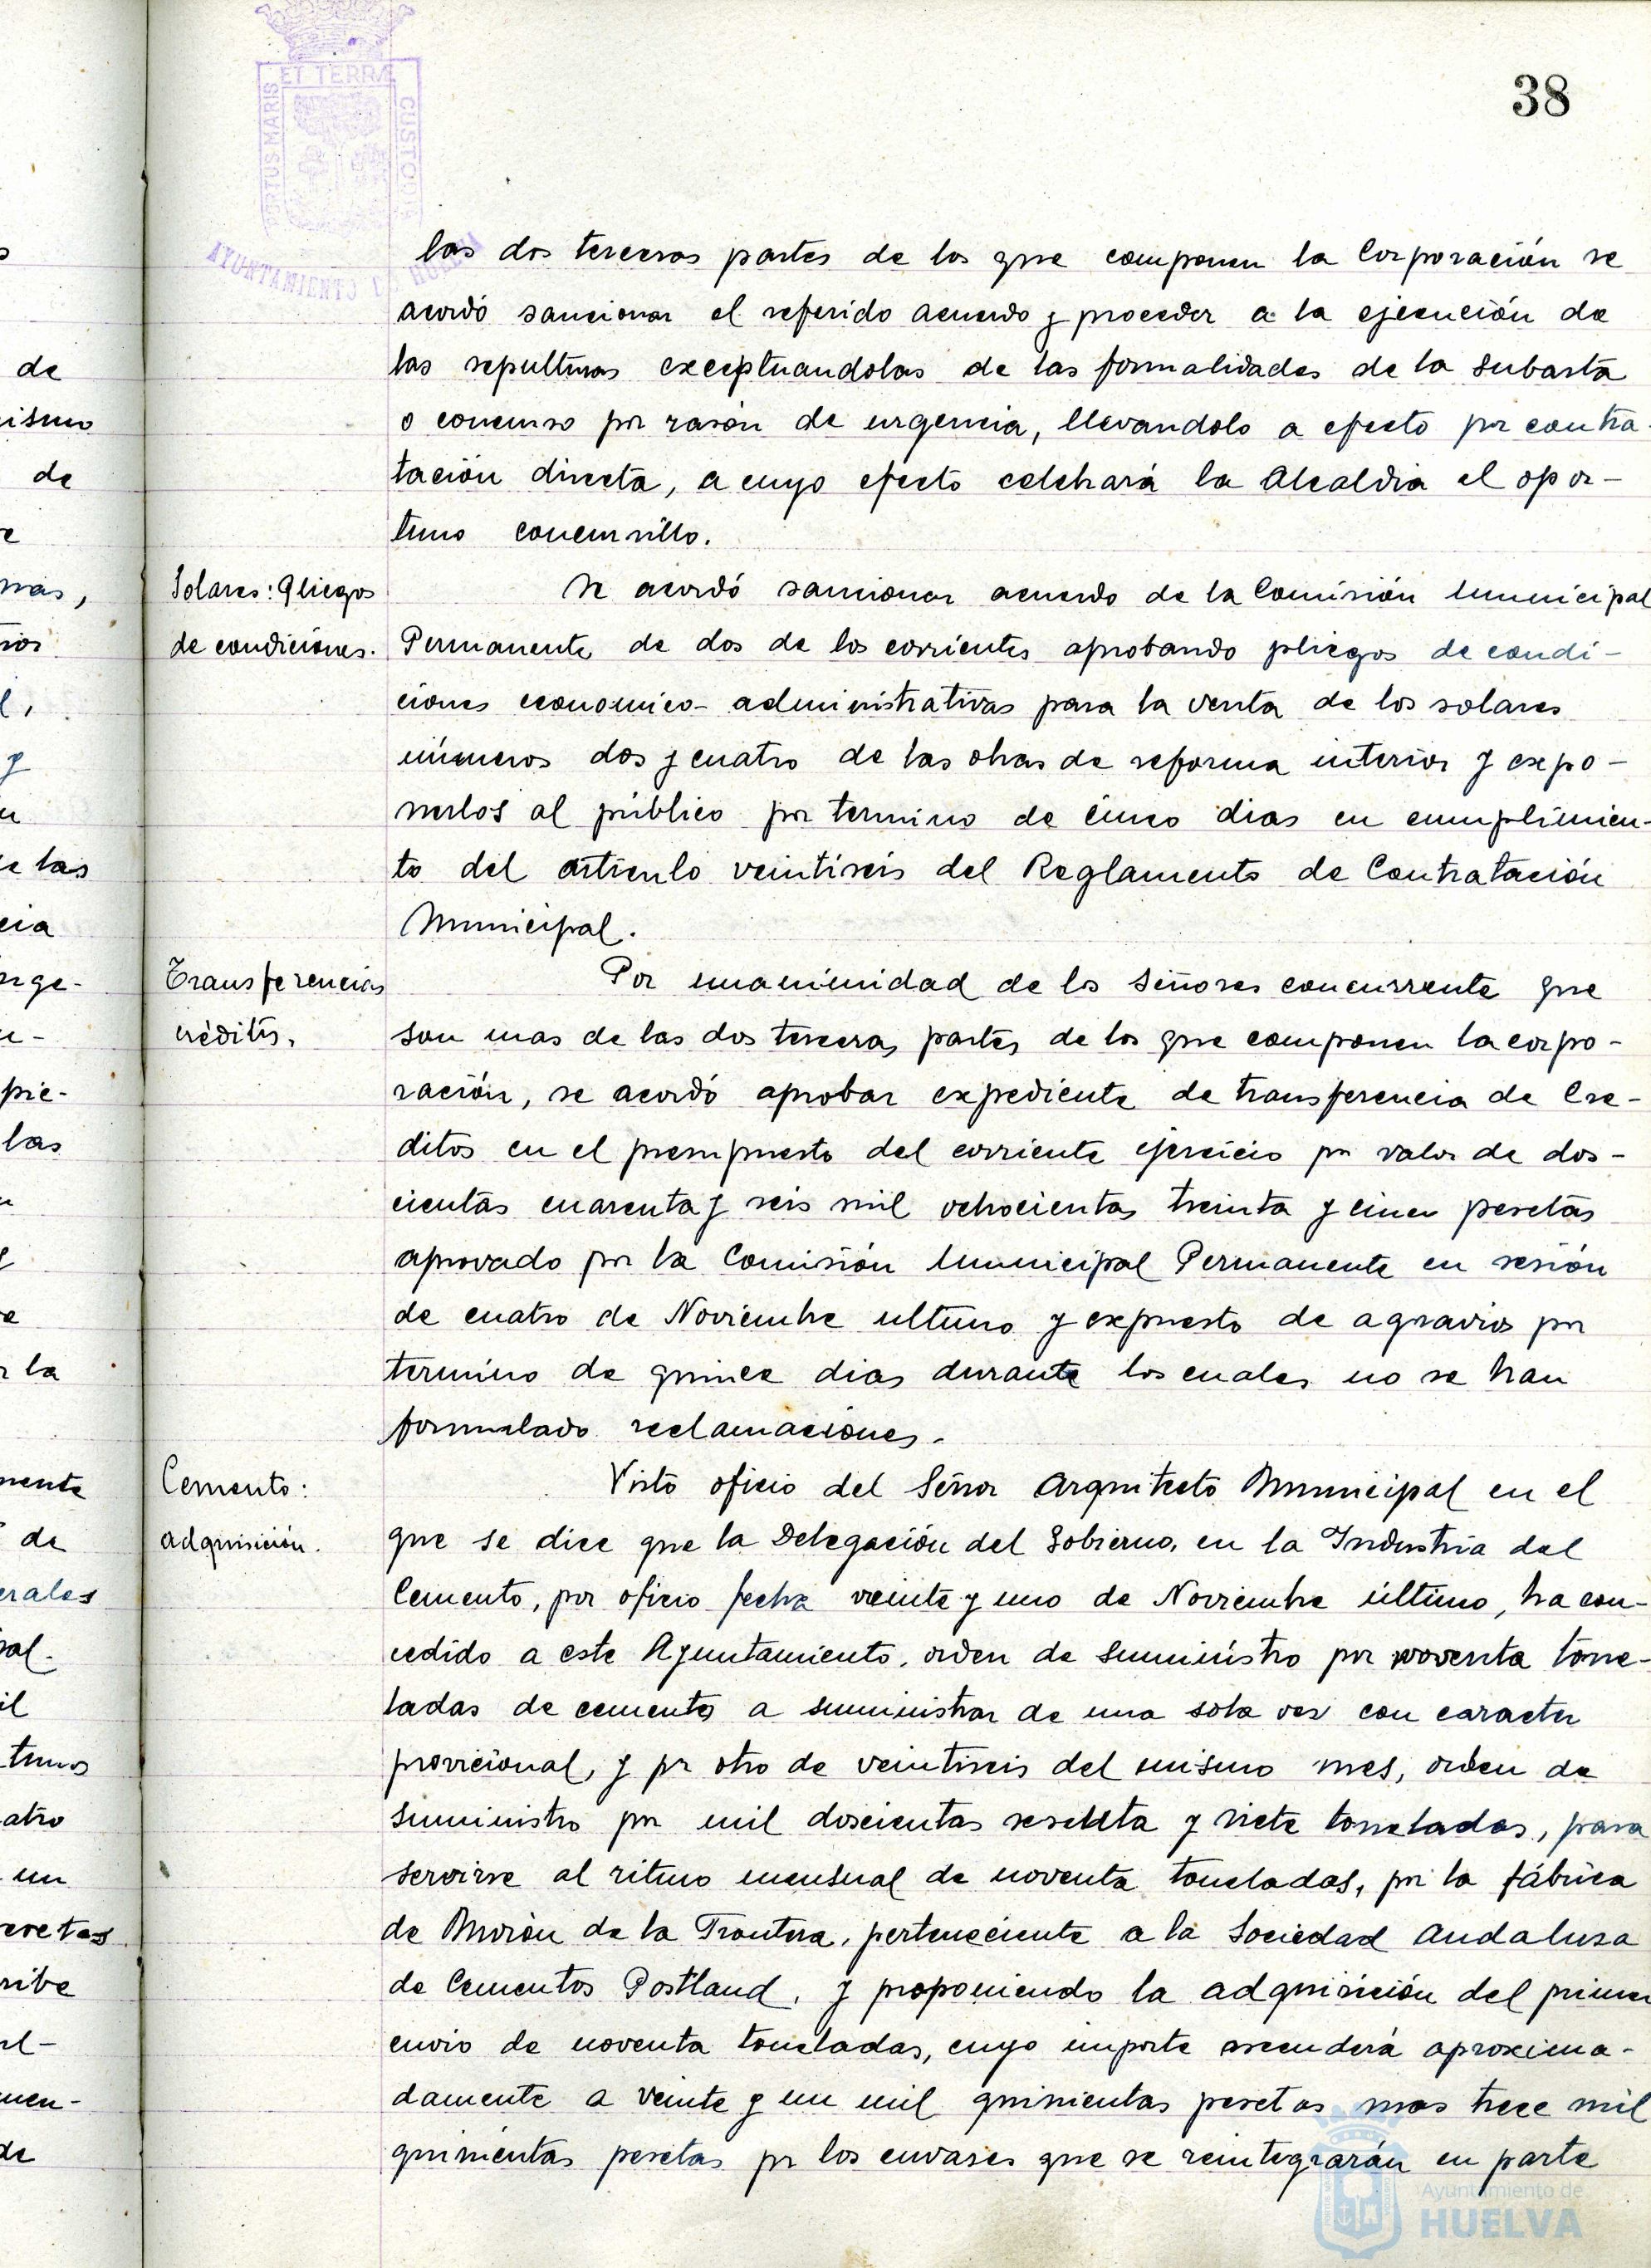 38
PORTUS MARIS ET TERRÆ CUSTODIA
AYUNTAMIENTO DE HUELVA
las dos terceras partes de los que componen la Corporación se
acordó sancionar el referido acuerdo y proceder a la ejecución de
las sepulturas exceptuandolas de las formalidades de la subasta
o concurso por rasón de urgencia, llevandolo a efecto por contra-
tación directa, a cuyo efecto celebrará la Alcaldia el opor-
tuno concursillo.
Solares: Pliegos
de condiciones.
Se acordó sancionar acuerdo de la Comisión Municipal
Permanente de dos de los corrientes aprobando pliegos de condi-
ciones economico-administrativas para la venta de los solares
números dos y cuatro de las obras de reforma interior y expo-
nerlos al público por termino de cinco dias en cumplimien-
to del artículo veintiseis del Reglamento de Contratación
Municipal.
Transferencias
créditos.
Por unanimidad de los señores concurrente que
son mas de las dos terceras partes de los que componen la corpo-
ración, se acordó aprobar expediente de transferencia de Cre-
ditos en el presupuesto del corriente ejercicio por valor de dos-
cientas cuarenta y seis mil ochocientas treinta y cinco pesetas
aprovado por la Comisión Municipal Permanente en sesión
de cuatro de Noviembre ultimo y expuesto de agravios por
termino de quince dias durante los cuales no se han
formulado reclamaciones.
Cemento:
adquisición.
Visto oficio del Señor Arquitecto Municipal en el
que se dice que la Delegación del Gobierno, en la Industria del
Cemento, por oficio fecha veinte y uno de Noviembre último, ha con-
cedido a este Ayuntamiento, orden de suministro por noventa tone-
ladas de cemento a suministrar de una sola vez con caracter
provicional, y por otro de veintiseis del mismo mes, orden de
suministro por mil doscientas sesenta y siete toneladas, para
servirse al ritmo mensual de noventa toneladas, por la fábrica
de Morón de la Frontera, perteneciente a la Sociedad Andalusa
de Cementos Postland, y proponiendo la adquisición del primer
envio de noventa toneladas, cuyo importe ascenderá aproxima-
damente a veinte y un mil quinientas pesetas mas trece mil
quinientas pesetas por los envases que se reintegrarán en parte
Ayuntamiento de
HUELVA